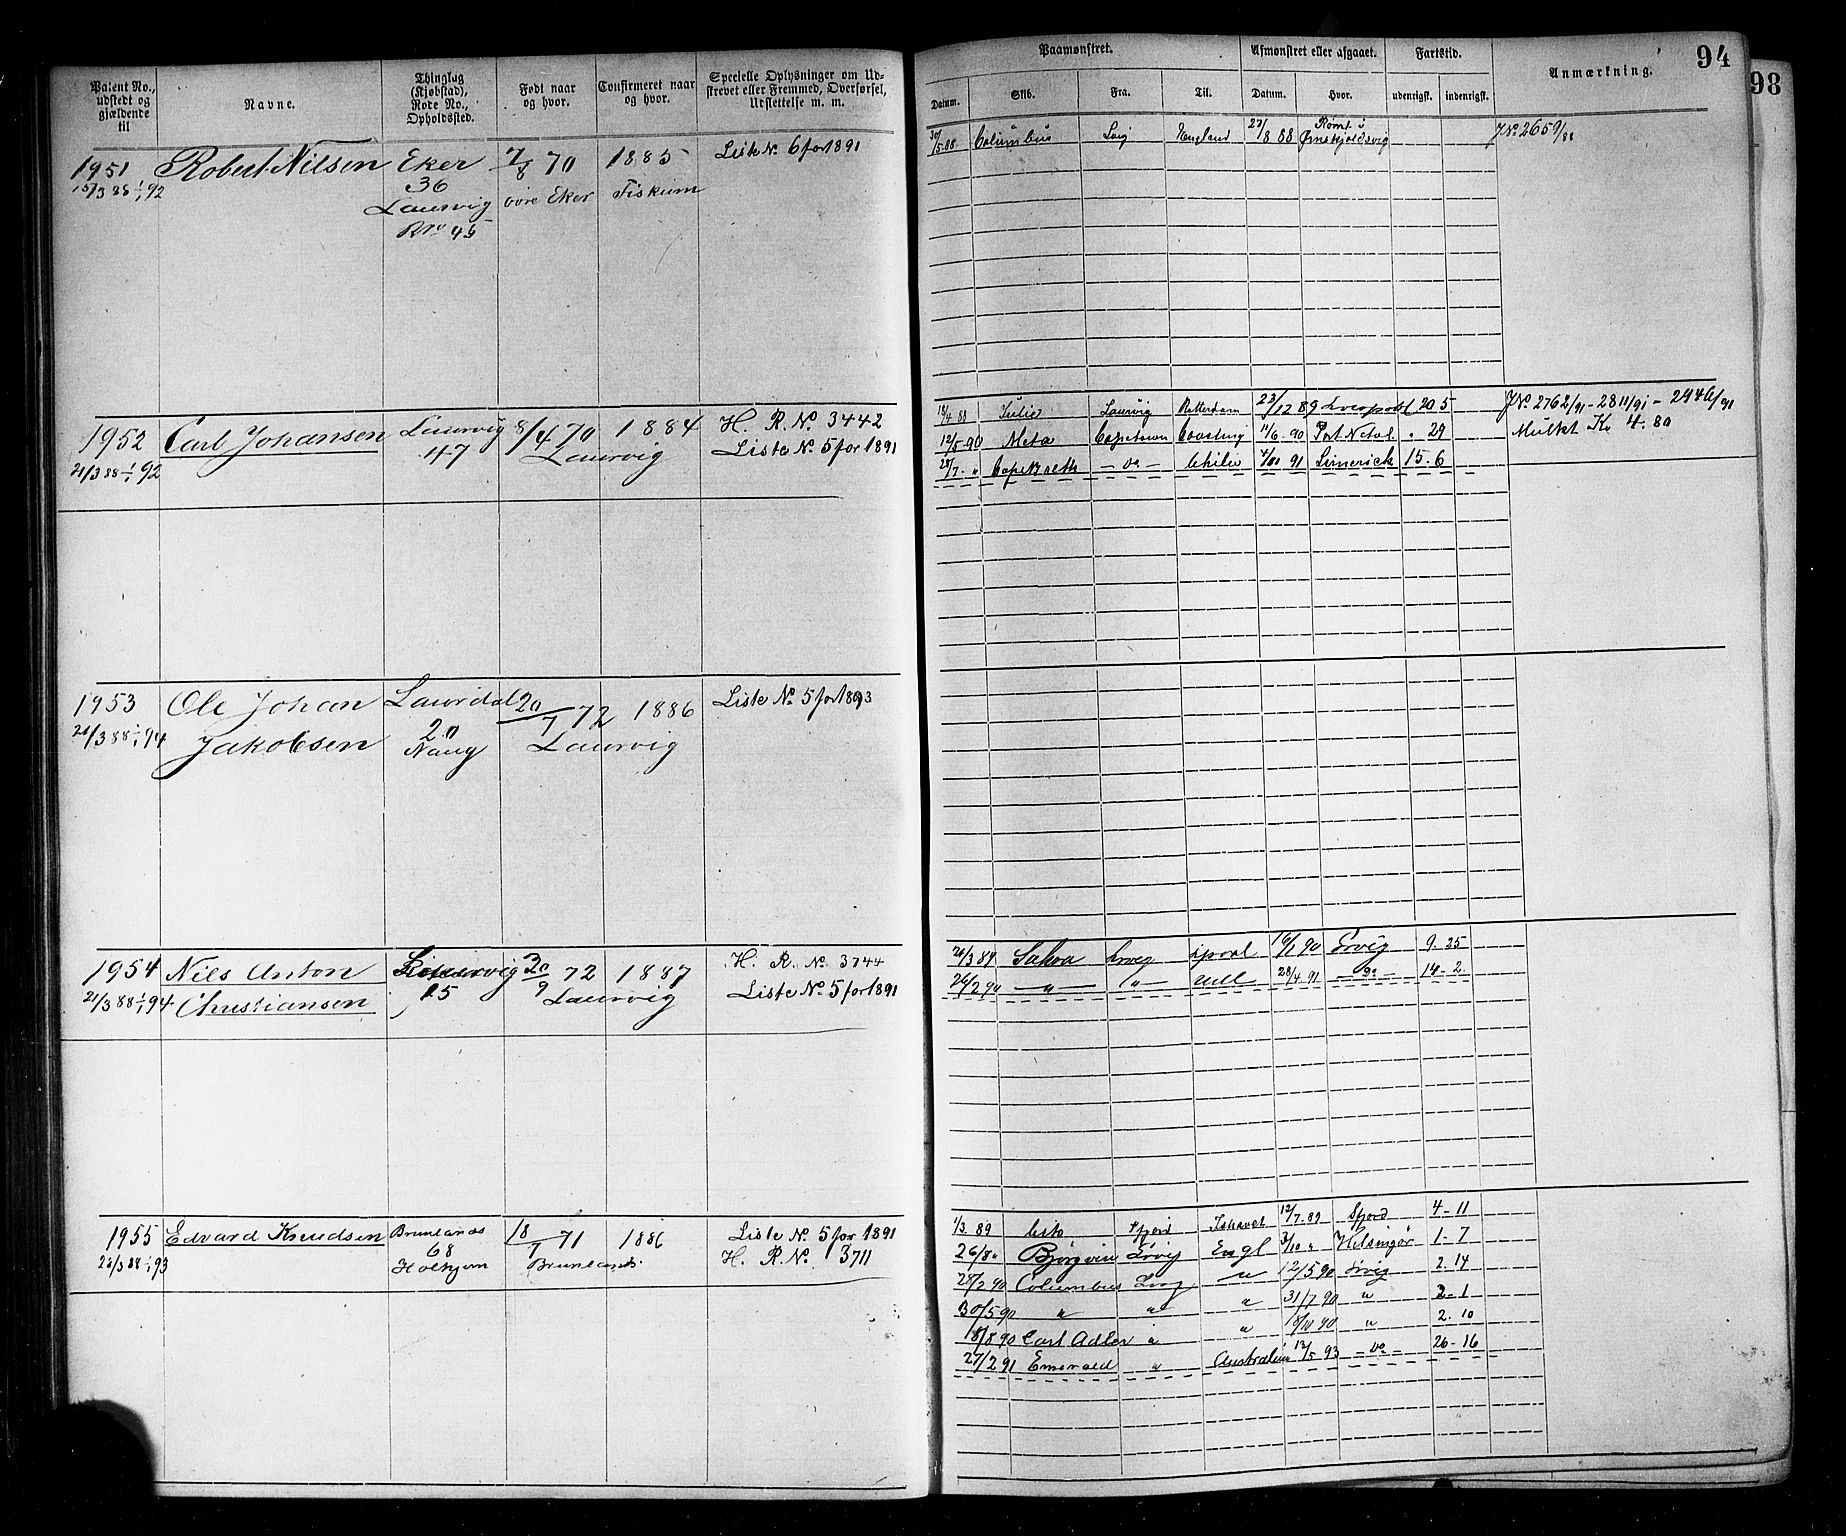 Patent No., udstedt og gjældende til
Navne.
Thinglag (Kjøbstad), Rode No., Opholdssted.
Født naar og hvor.
Confirmeret naar og hvor.
Specielle Oplysninger om Udstrevet eller Fremmed, Overførsel, Udslettelse m. m.
1951 Robert Nilsen Eker 7/8 70 1885 Liste No. 6 for 1891
15/3 88 1/1 92 36 øvre Eker Fiskum
Laurvig
Rno 45
1952 Carl Johansen Laurvig 8/4 70 1884 H. R. No. 3442
21/3 88 1/1 92 47 Laurvig Liste No. 5 for 1891
1953 Ole Johan Laurdal 20/7 72 1886 Liste No. 5 for 1893
21/3 88 1/1 94 Jakobsen 20 Laurvig
Naug
1954 Nils Anton Laurvig 30/9 72 1887 H. R. No. 3744
21/3 88 1/1 94 Christiansen 15 Laurvig Liste No. 5 for 1891
1955 Edvard Knudsen Brunlanes 18/7 71 1886 Liste No. 5 for 1891
23/3 88 1/1 93 68 Brunlanes H. R. No. 3711
Holhjem
94
98
Paamønstret.
Afmønstret eller afgaaet.
Fartstid.
Anmærkning.
Datum. Skib. Fra. Til. Datum. Hvor. udenrigsk. indenrigsk.
30/5 88 Columbus Lvig England 23/8 88 Rømt i Ørnskjoldsvig J No 2659/88
18/4 88 Julie Laurvig Rotterdam 23/12 89 Liverpool 20 5 J No 2762/91 - 2811/91 - 2946/91
12/5 90 Meta Capetown Coasting 11/6 90 Port Natal " 29 Mulkt Kr 4.80
28/7 " Cape Breth - do - Chilie 4/10 91 Limerick 15-6
26/3 89 Sakoa Lrvig 16/1 90 Lrvig 9. 25
26/2 90 - " - " 28/4 91 - do - 14-2
1/3 89 Cito Sfjord Ishavet 12/7 89 Sfjord 4-11
26/8 " Bjørgvin Lrvig Engl 3/10 " Helsingør 1-7
25/2 90 Columbus Lvig " 12/5 90 Lrvig 2.14
30/5 90 " " " 31/7 90 " 2-1
18/8 90 Carl Adler " " 18/10 90 " 2.10
27/2 91 Emerald " Australien 12/5 93 - do - 26-16